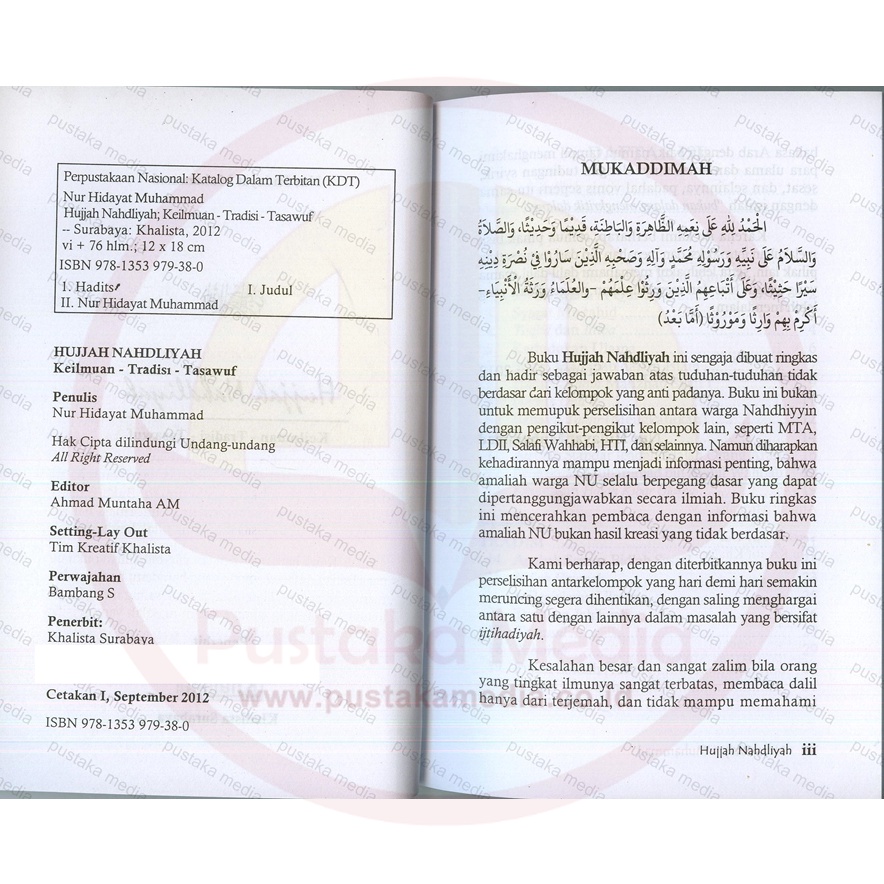 Perpustakaan Nasional: Katalog Dalam Terbitan (KDT)
Nur Hidayat Muhammad
Hujjah Nahdliyah; Keilmuan - Tradisi - Tasawuf
-- Surabaya: Khalista, 2012
vi + 76 hlm.; 12 x 18 cm
ISBN 978-1353 979-38-0
I. Hadits I. Judul
II. Nur Hidayat Muhammad
HUJJAH NAHDLIYAH
Keilmuan - Tradisi - Tasawuf
Penulis
Nur Hidayat Muhammad
Hak Cipta dilindungi Undang-undang
All Right Reserved
Editor
Ahmad Muntaha AM
Setting-Lay Out
Tim Kreatif Khalista
Perwajahan
Bambang S
Penerbit:
Khalista Surabaya
Cetakan I, September 2012
ISBN 978-1353 979-38-0
MUKADDIMAH
الْحَمْدُ لِلهِ عَلَى نِعَمِهِ الظَّاهِرَةِ وَالبَاطِنَةِ، قَدِيْمًا وَحَدِيْثًا، وَالصَّلَاةُ
وَالسَّلَامُ عَلَى نَبِيِّهِ وَرَسُوْلِهِ مُحَمَّدٍ وَآلِهِ وَصَحْبِهِ الَّذِيْنَ سَارُوْا فِيْ نُصْرَةِ دِيْنِهِ
سَيْرًا حَثِيْثًا، وَعَلَى أَتْبَاعِهِمُ الَّذِيْنَ وَرِثُوْا عِلْمَهُمْ –والعُلَمَاءُ وَرَثَةُ الْأَنْبِيَاءِ–
أَكْرِمْ بِهِمْ وَارِثًا وَمَوْرُوْثًا (أَمَّا بَعْدُ)
Buku Hujjah Nahdliyah ini sengaja dibuat ringkas
dan hadir sebagai jawaban atas tuduhan-tuduhan tidak
berdasar dari kelompok yang anti padanya. Buku ini bukan
untuk memupuk perselisihan antara warga Nahdhiyyin
dengan pengikut-pengikut kelompok lain, seperti MTA,
LDII, Salafi Wahhabi, HTI, dan selainnya. Namun diharapkan
kehadirannya mampu menjadi informasi penting, bahwa
amaliah warga NU selalu berpegang dasar yang dapat
dipertanggungjawabkan secara ilmiah. Buku ringkas
ini mencerahkan pembaca dengan informasi bahwa
amaliah NU bukan hasil kreasi yang tidak berdasar.
Kami berharap, dengan diterbitkannya buku ini
perselisihan antarkelompok yang hari demi hari semakin
meruncing segera dihentikan, dengan saling menghargai
antara satu dengan lainnya dalam masalah yang bersifat
ijtihadiyah.
Kesalahan besar dan sangat zalim bila orang
yang tingkat ilmunya sangat terbatas, membaca dalil
hanya dari terjemah, dan tidak mampu memahami
Hujjah Nahdliyah iii
Pustaka Media
www.pustakamedia.co.id
pustaka media